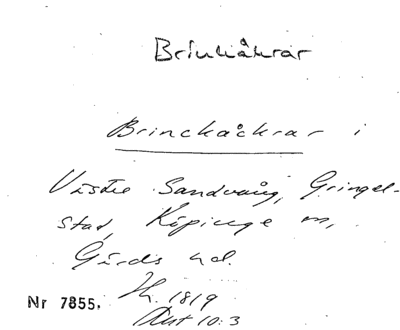 Brinkåkrar
Brinckåckrar i
Västre Sandvång, Gringel-
stad, Köpinge sn,
Gärds hd.
Nr 7855. Jb. 1819
Akt 10:3